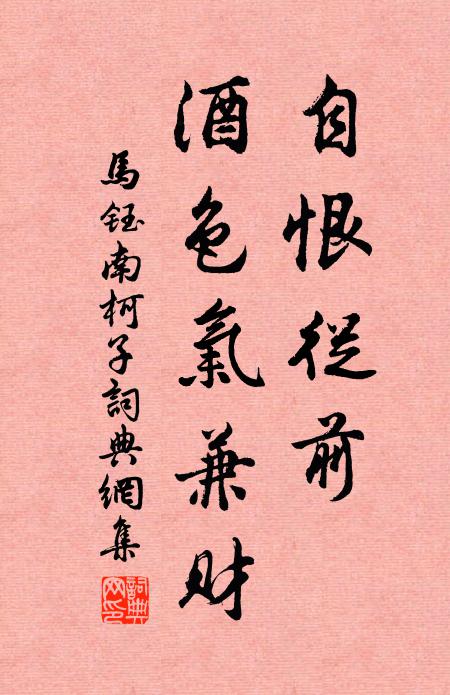 自恨從前
酒色氣兼財
馬鈺南柯子詞典網集
詞典網印